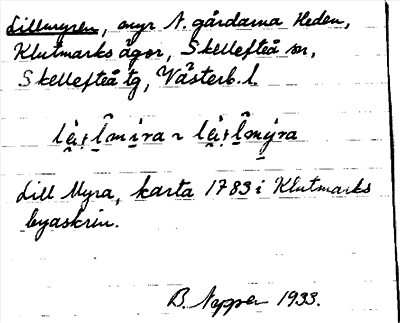 Lillmyren, myr N. gårdarna Heden,
Klutmarks ägor, Skellefteå sn,
Skellefteå tg, Västerb. l.
Lill Myra, karta 1783 i Klutmarks
byaskrin.
B. 1933.